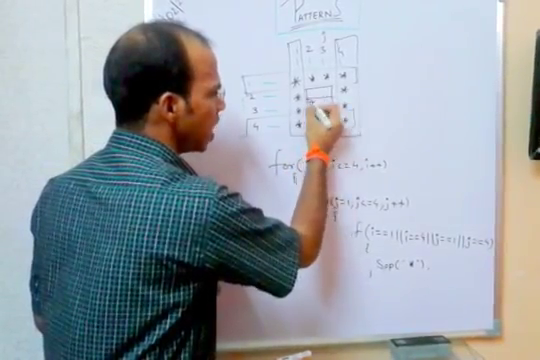 PATTERNS
j
1 2 3 4
* * * *
2 *
3 * *
4 * *
for( i<=4, i++)
{
(j=1, j<=4, j++)
{
f(i==1||i==4||j==1||j==4)
{
Sop("*"),
}